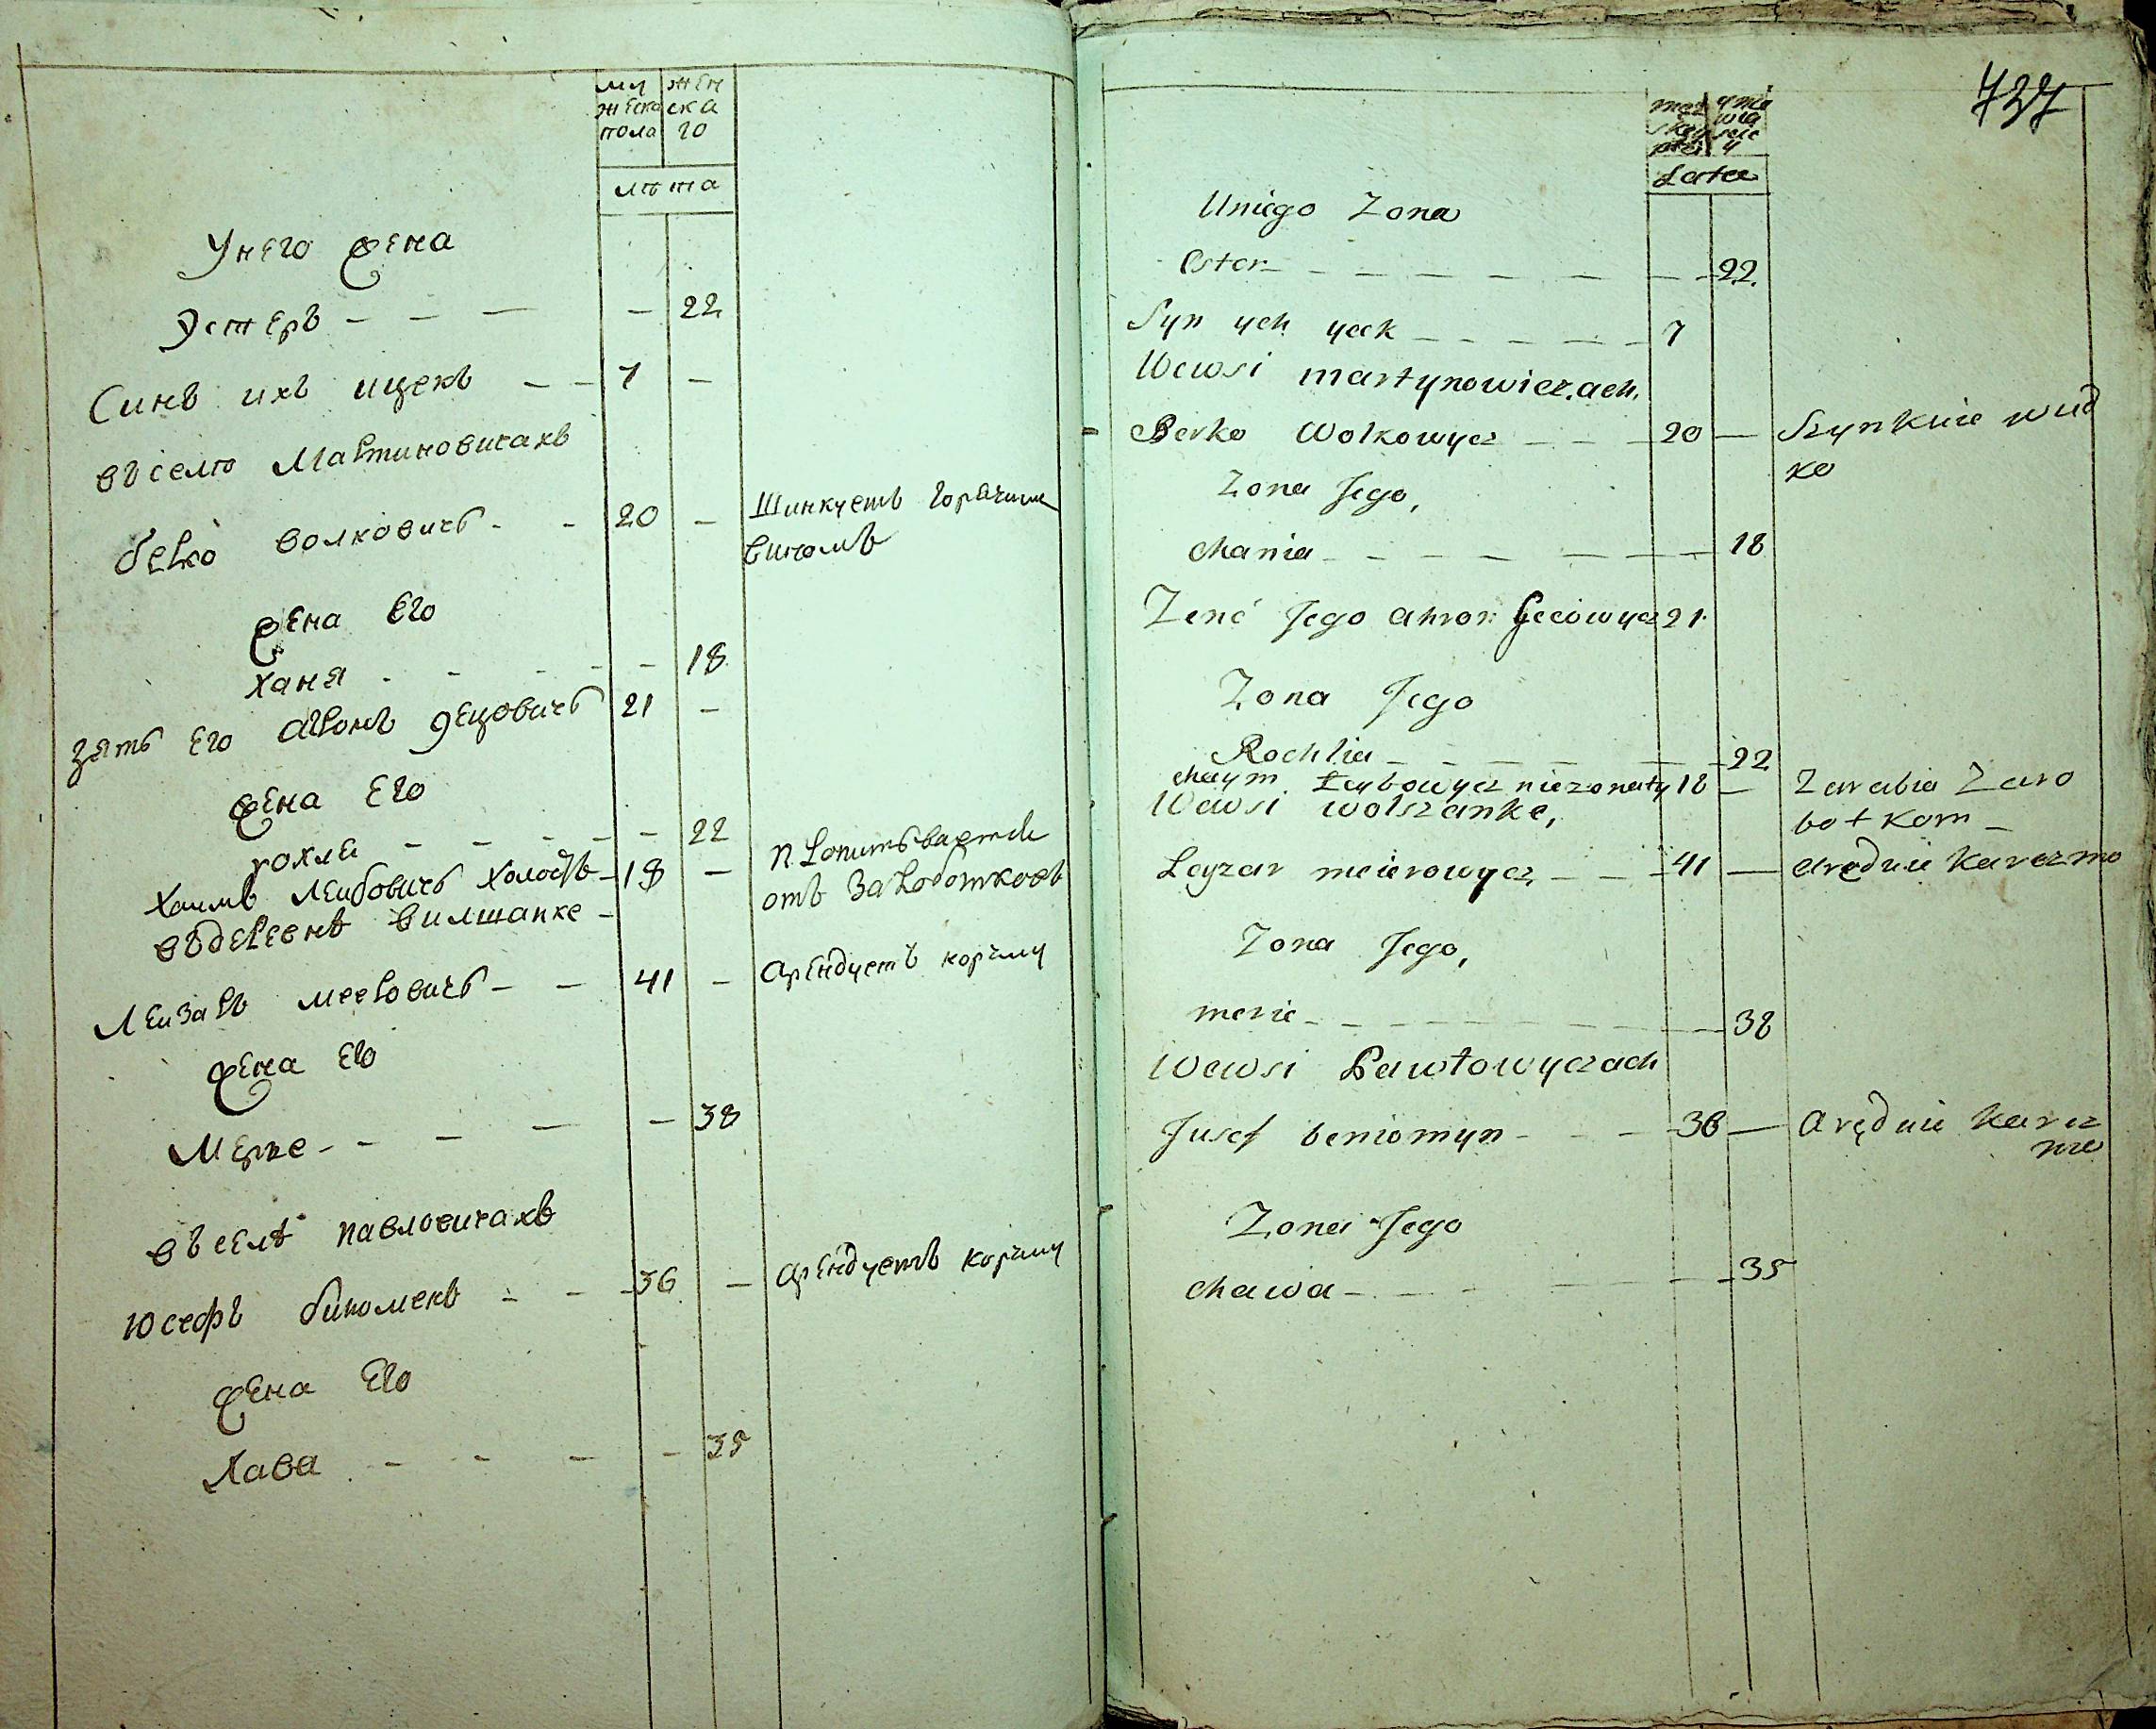 му жеска пола
жен ска го
лѣта
Унего жена
Эстеръ - - - - 22
Синъ ихъ ицекъ - - 7 -
въ селѣ Мартиновичахъ
берко волковичъ - - 20 - Шинкуетъ горачим
виномъ
жена его
ханя - - - - 18
зять его аронъ децовичъ 21 -
жена его
рохля - - - - - 22
хаимъ леибовичъ холостъ - 18 - пропитъвается
отъ заработковъ
въ деревнѣ вилшанке -
Леизаръ мееровичъ - - 41 - арендуетъ корчму
жена его
Мерке - - - - 38
въ селѣ павловичахъ
Юсефъ биномекъ - - - 36 - арендуетъ корчму
жена его
Хава - - - - 35
737
Latea
Uniego Zona
Ester - - - - - - - - 22
Syn ych ycek - - - - - 7
Wewsi martynowiczach.
Berko Wolkowycz - - - 20 - Szynkuie wud
ko
Zona Jego,
chania - - - - - - - 18
Zenć Jego ahron Gecowycz 21
Zona Jego
Rochlia - - - - - - 22
chaym Leybowycz niezonaty 18 - Zarabia Zaro
botkom -
Wewsi wolszanke,
Leyzar meierowycz - - - 41 - Aręduie karczmo
Zona Jego,
merie - - - - - - - - 38
Wewsi Pawłowyczach
Jusef beniomyn - - - 36 - Aręduie karcz
mo
Zona Jego
chawa - - - - - - - 35